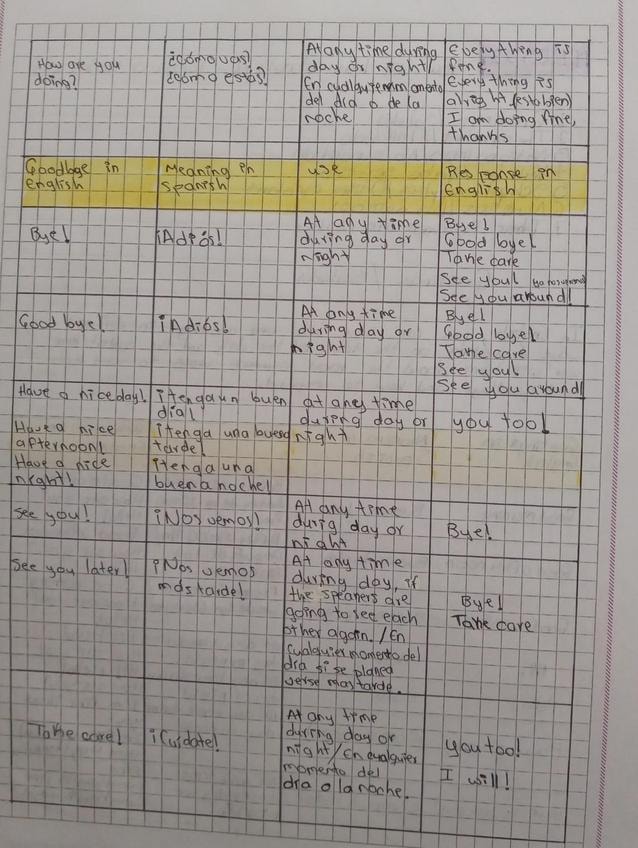 How are you
doing?
¿cómo vas?
¿cómo estás?
At any time during
day or night/
En cualquier momento
del día o de la
noche
everything is
fine.
everything is
alright (esto bien)
I am doing fine,
thanks
Goodbye in
english
Meaning in
spanish
use
Response in
English
Bye!
¡Adiós!
At any time
during day or
night
Bye!
Good bye!
Take care
See you!
See you around!
Good bye!
¡Adiós!
At any time
during day or
night
Bye!
Good bye!
Take care
See you!
See you around!
Have a nice day!
Have a nice
afternoon!
Have a nice
night!
¡tenga un buen
día!
¡tenga una buena
tarde!
¡tenga una
buena noche!
at any time
during day or
night
you too!
See you!
¡Nos vemos!
At any time
durig day or
night
Bye!
See you later!
¡Nos vemos
más tarde!
At any time
during day, if
the speakers are
going to see each
other again. / En
cualquier momento del
día si se planea
verse mas tarde.
Bye!
Take care
Take care!
¡Cuídate!
At any time
during day or
night / En cualquier
momento del
día o la noche.
you too!
I will!